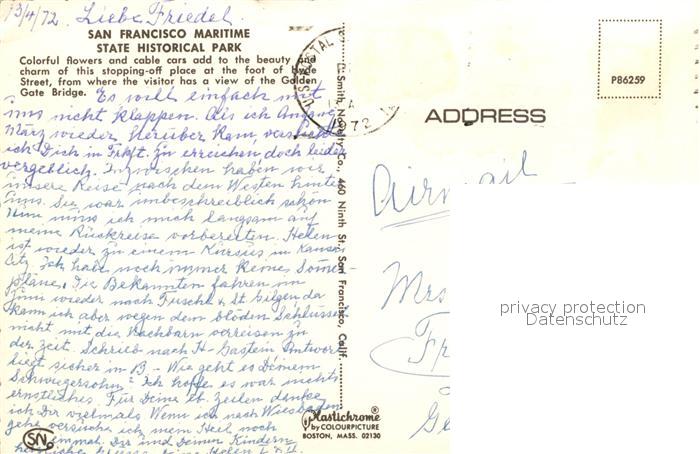 13/4/72. Liebe Friedel.
SAN FRANCISCO MARITIME
STATE HISTORICAL PARK
Colorful flowers and cable cars add to the beauty and
charm of this stopping-off place at the foot of Hyde
Street, from where the visitor has a view of the Golden
Gate Bridge.
Es will einfach mit
uns nicht klappen. Als ich Anfang
März wieder herüber kam, versuchte
ich Dich in Frkft. zu erreichen, doch leider
vergeblich. Inzwischen haben wir
unsere Reise nach dem Westen hinter
uns. Sie war unbeschreiblich schön
Nun muss ich mich langsam auf
meine Rückreise vorbereiten. Helen
ist wieder zu einem Kursus in Kansas
City. Ich habe noch immer keine Sommer
pläne. Die Bekannten fahren im
Juni wieder nach Fuschl & St Gilgen da
kann ich aber wegen dem blöden Schlüssel
nicht mit die Nachbarn verreisen zu
der Zeit. Schrieb nach H-Gastein Antwort
liegt sicher in B - Wie geht es Deinem
Schwiegersohn? Ich hoffe es war nichts
ernstliches. Für Deine lb. Zeilen danke
ich Dir vielmals Wenn ich nach Wiesbaden
gehe versuche ich mein Heil noch
einmal. Dir und Deinen Kindern
herzliche Grüsse Deine Helen
U.S. POSTAL
1972
© Smith Novelty Co., 460 Ninth St. San Francisco, Calif.
P86259
ADDRESS
Airmail
Mrs
F
Ge
privacy protection
Datenschutz
SN
Plastichrome®
by COLOURPICTURE
BOSTON, MASS. 02130